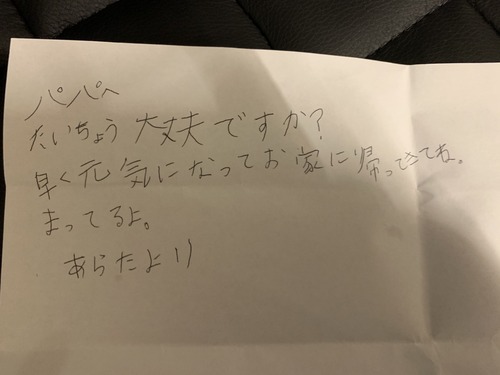 パパへ
たいちょう大丈夫ですか?
早く元気になってお家に帰ってきてね。
まってるよ。
あらたより